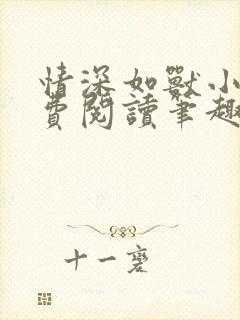 情深如獸小
費閱讀筆趣
十一